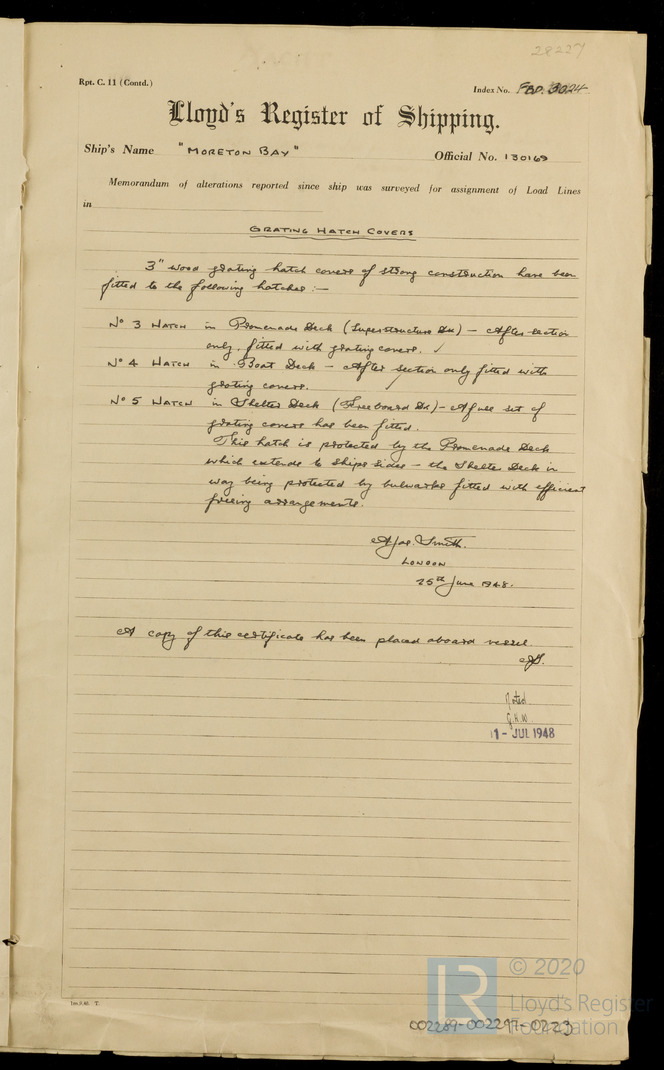 28227
Rpt. C. 11 (Contd.)
Index No. FBD. 3024
Lloyd's Register of Shipping.
Ship's Name "MORETON BAY"
Official No. 130169
Memorandum of alterations reported since ship was surveyed for assignment of Load Lines
in
GRATING HATCH COVERS
3" wood grating hatch covers of strong construction have been
fitted to the following hatches :—
No 3 HATCH in Promenade Deck (Superstructure Dk) — After section
only, fitted with grating covers. ✓
No 4 HATCH in Boat Deck — After section only fitted with
grating covers.
No 5 HATCH in Shelter Deck (Freeboard Dk) — A full set of
grating covers has been fitted.
This hatch is protected by the Promenade Deck
which extends to ships sides — the Shelter Deck in
way being protected by bulwarks fitted with efficient
freeing arrangements.
A Jas. Smith.
LONDON
25th June 1948.
A copy of this certificate has been placed aboard vessel
Noted
G.H.W.
1 - JUL 1948
© 2020
LR
Lloyd's Register
Foundation
002289-002297-0223